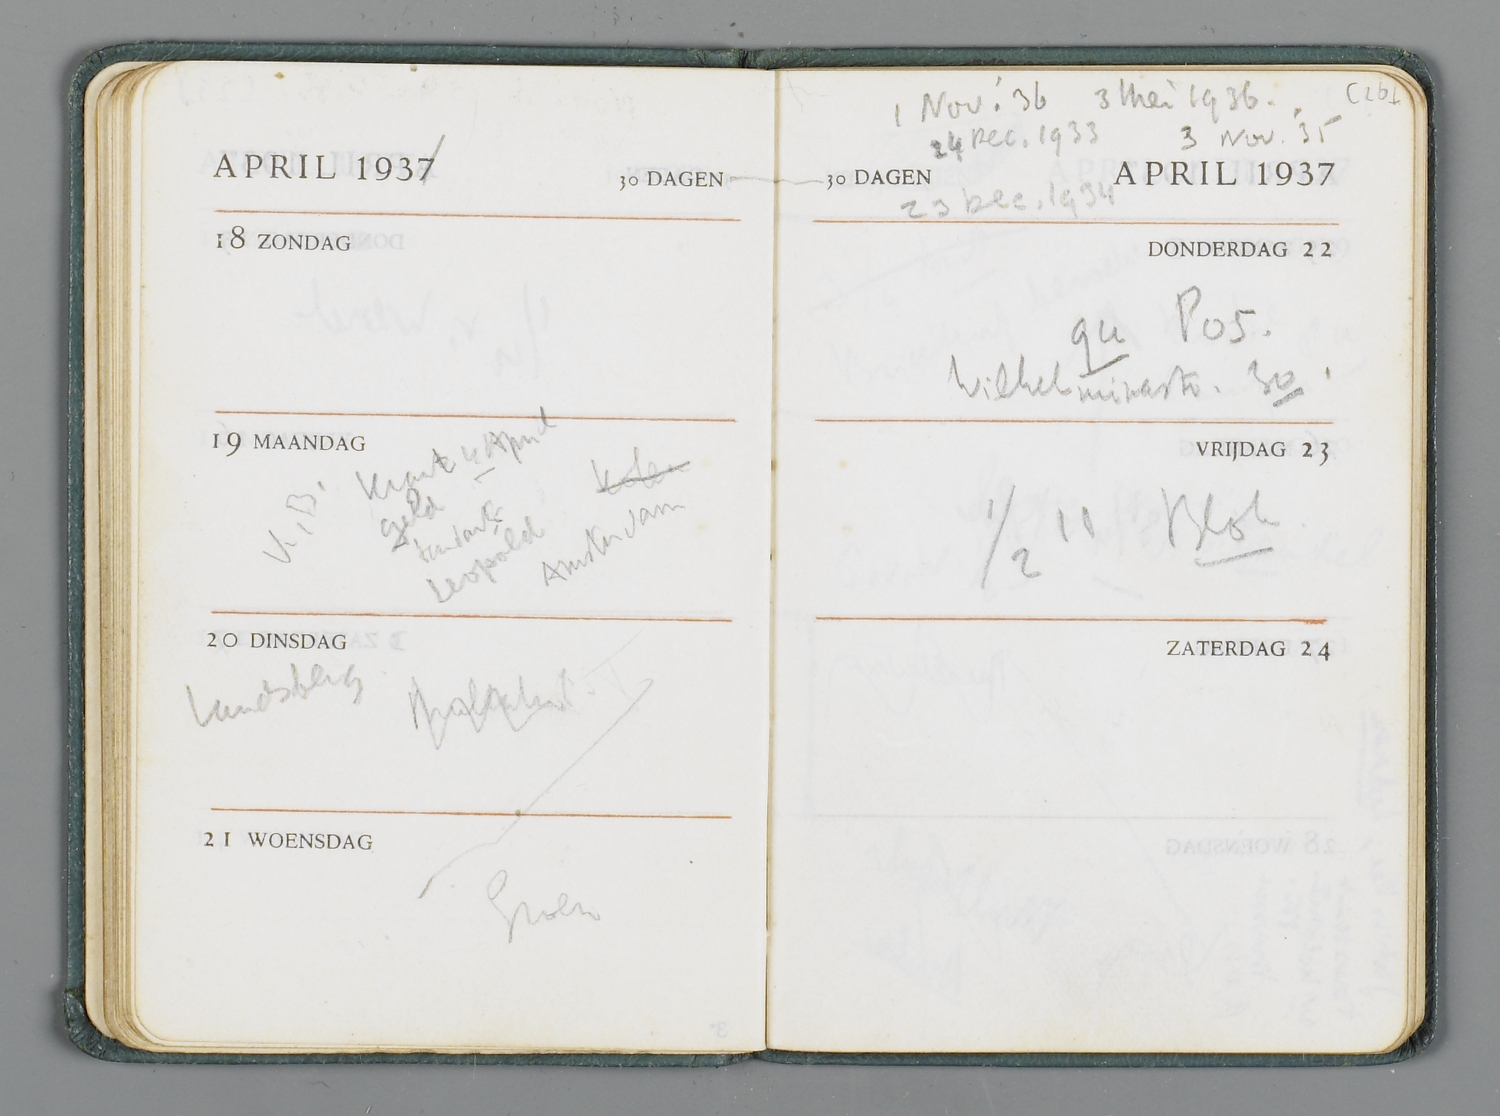 APRIL 1937
30 DAGEN
18 ZONDAG
19 MAANDAG
V.B. Krant 4 April
geld
Leopold
Amsterdam
20 DINSDAG
Landsberg
21 WOENSDAG
Groen
1 Nov. '36 3 Mei 1936.
24 Dec. 1933 3 Nov. '35
30 DAGEN
APRIL 1937
23 Dec. 1934
DONDERDAG 22
Pos.
Wilhelminastr. 30
VRIJDAG 23
1/2 11 Blok
ZATERDAG 24